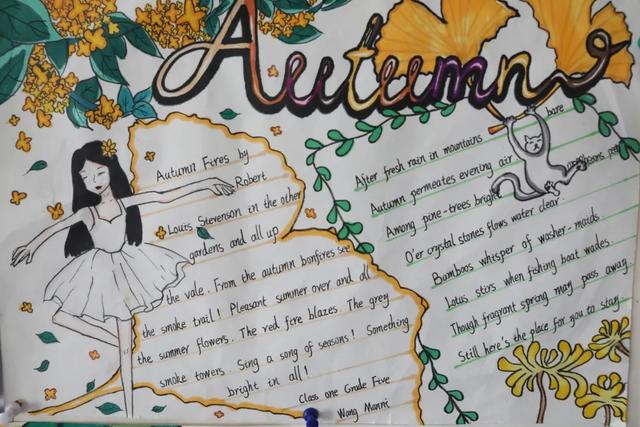 Autumn
Autumn Fires by
Robert
Louis Stevenson in the other
gardens and all up
the vale. From the autumn bonfires see
the smoke trail! Pleasant summer over and all
the summer flowers. The red fire blazes. The grey
smoke towers. Sing a song of seasons! Something
bright in all!
Class one Grade Five
Wang Manni
After fresh rain in mountains bare
Autumn permeates evening air
Among pine-trees bright
O'er crystal stones flows water clear.
Bamboos whisper of washer-maids.
Lotus stirs when fishing boat wades.
Though fragrant spring may pass away.
Still here's the place for you to stay.